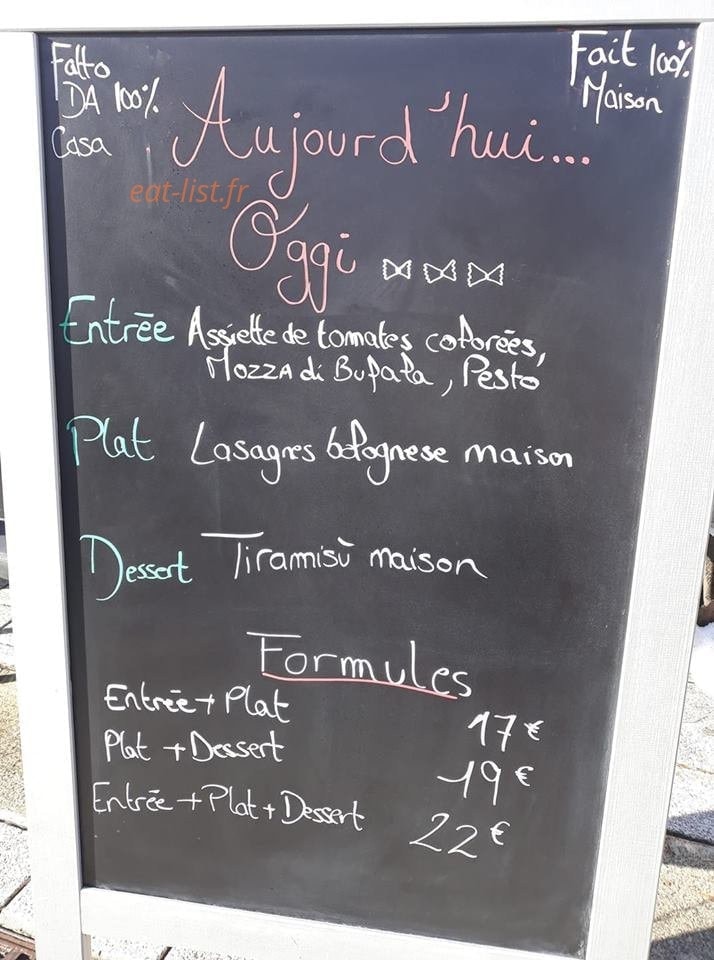 Fatto
DA 100%
Casa
Fait 100%
Maison
Aujourd'hui...
eat-list.fr
Oggi
Entrée Assiette de tomates colorées,
Mozza di Bufala, Pesto
Plat Lasagnes bolognese maison
Dessert Tiramisù maison
Formules
Entrée + Plat 17€
Plat + Dessert 19€
Entrée + Plat + Dessert 22€